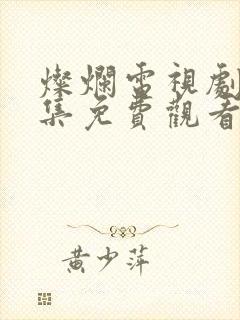 燦爛電視劇
集免費觀看
黃少萍